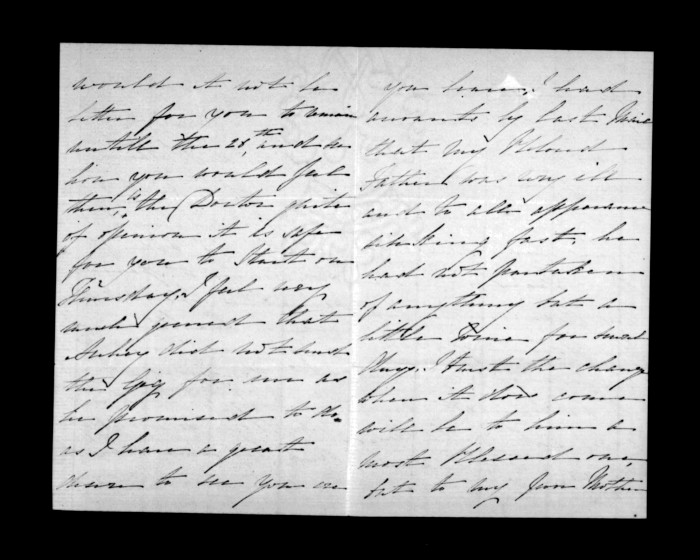 would it not be
better for you to remain
untill the 28th, and see
how you would feel
then, is the Doctor quite
of opinion it is safe
for you to start on
Thursday, I feel very
much grieved that
did not send
the Gig for me as
he promised to do
as I have a great
desire to see you ere
you leave, I had
accounts by last Mail
that My Beloved
Father was very ill
and to all appearance
sinking fast, he
had not partaken
of anything but a
little Wine for several
Days. I trust the change
when it does come
will be to him a
most Blessed one,
but to my poor Mother